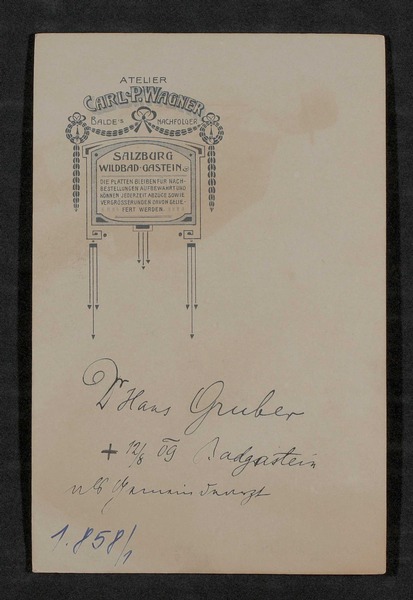 ATELIER
CARL P. WAGNER
BALDE'S NACHFOLGER
SALZBURG
WILDBAD-GASTEIN
DIE PLATTEN BLEIBEN FÜR NACH-
BESTELLUNGEN AUFBEWAHRT UND
KÖNNEN JEDERZEIT ABZÜGE SOWIE
VERGRÖSSERUNGEN DAVON GELIE-
FERT WERDEN
Dr Hans Gruber
+ 12/8 09 Badgastein
als Gemeindearzt
1.858/1